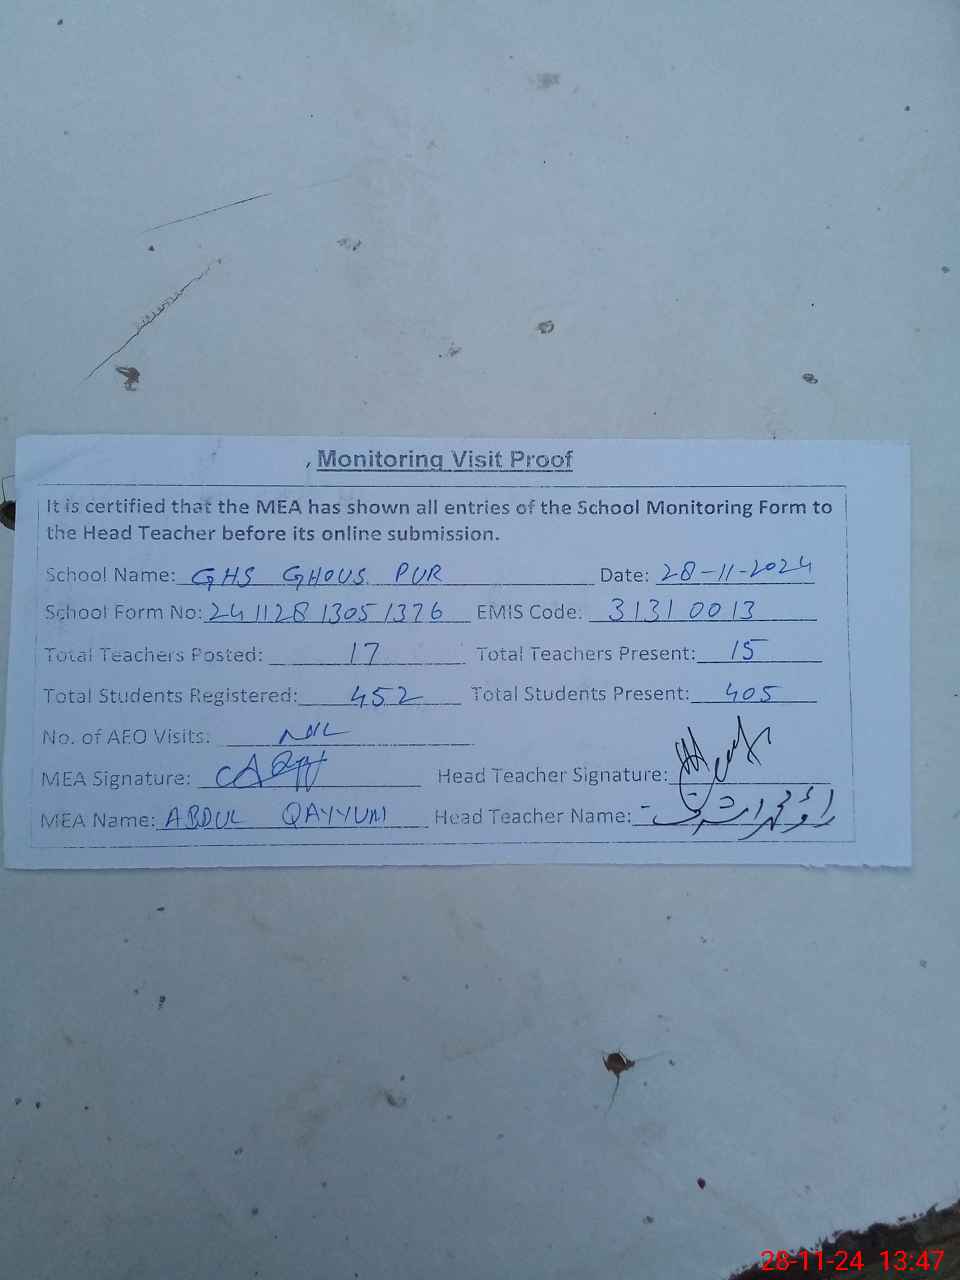 Monitoring Visit Proof
It is certified that the MEA has shown all entries of the School Monitoring Form to
the Head Teacher before its online submission.
School Name: GHS GHOUS PUR Date: 28-11-2024
School Form No: 241128 1305 1376 EMIS Code: 31310013
Total Teachers Posted: 17 Total Teachers Present: 15
Total Students Registered: 452 Total Students Present: 405
No. of AEO Visits: NIL
MEA Signature: Head Teacher Signature:
MEA Name: ABDUL QAYYUM Head Teacher Name: راؤ محمد اشرف
28-11-24 13:47